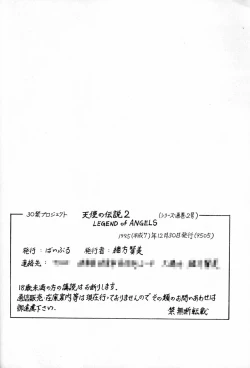 30禁プロジェクト 天使の伝説2 (シリーズ通巻2号)
LEGEND of ANGELS
1995(平成7)年12月30日発行(9505)
発行: ぱのぷる 発行者: 緒方賢美
連絡先:
18歳未満の方の購読はお断りします。
通信販売・在庫案内等は現在行っておりませんのでその類のお問いあわせは
御遠慮下さい。
禁無断転載